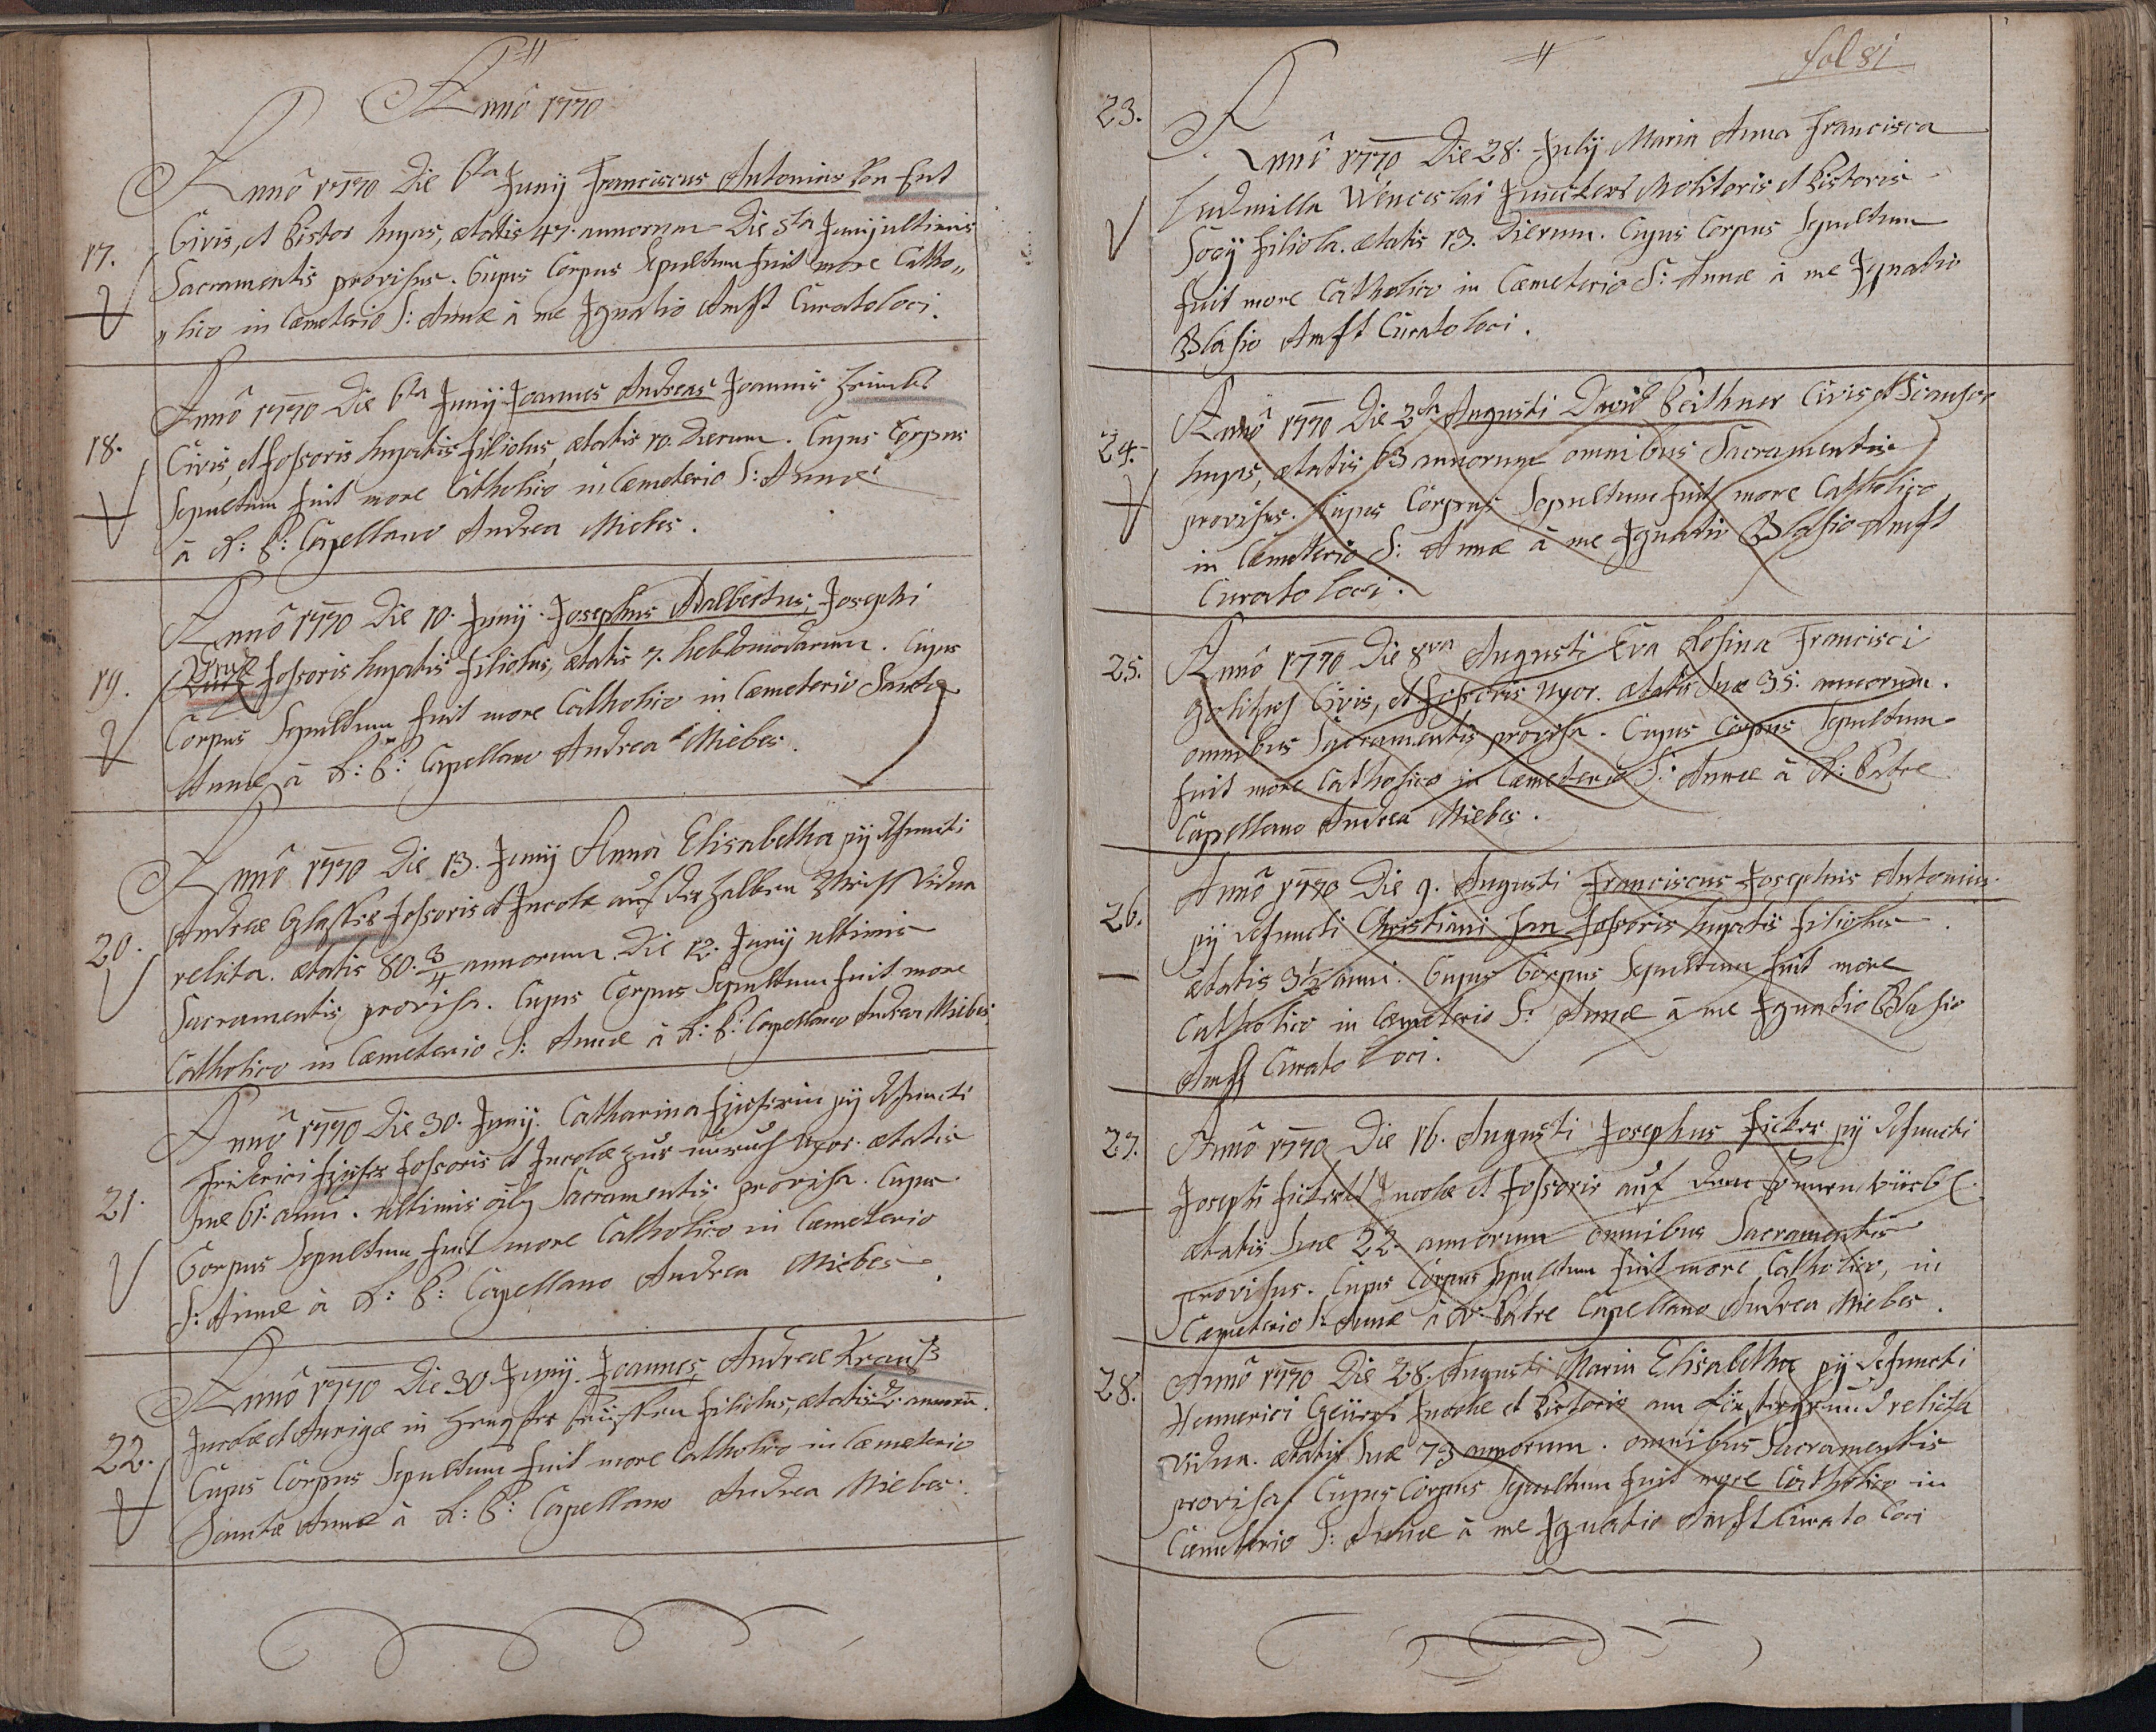 Annô 1770
17.
Annô 1770 Die 6ta Junij Franciscus Antonius
Civis, et Pistor hujas, ætatis 47. annorum Die 5ta Junij ultimis
Sacramentis provisus. Cujus Corpus Sepultum fuit more Catho„
„lico in Cæmeterio S: Annæ à me Ignatio Amst Curato loci.
18.
Annô 1770 Die 6ta Junij Joannes Andreas Joannis
Civis, et fossoris hujatis filiolus, ætatis 10. Dierum. Cujus Corpus
Sepultum fuit more Catholico in Cæmeterio S: Annæ
à R: P: Capellano Andrea Miebes.
19.
Annô 1770 Die 10. Junij. Josephus Adalbertus, Josephi
fossoris hujatis filiolus, ætatis 7. hebdomadarum. Cujus
Corpus Sepultum fuit more Catholico in Cæmeterio Sanctæ
Annæ à R: P: Capellano Andrea Miebes.
20.
Annô 1770 Die 13. Junij Anna Elisabetha pij defuncti
Andreæ Glasser fossoris et Incolæ auf der halben Vidua
relicta. ætatis 80. 3/4 annorum. Die 12. Junij ultimis
Sacramentis provisa. Cujus Corpus Sepultum fuit more
Catholico in Cæmeterio S: Annæ à R: P: Capellano Andrea Miebes.
21.
Annô 1770 Die 30. Junij. Catharina pij defuncti
Friderici fossoris et Incolæ zur Uxor. ætatis
suæ 61. anni. ultimis Sacramentis provisa. Cujus
Corpus Sepultum fuit more Catholico in Cæmeterio
S: Annæ à R: P: Capellano Andrea Miebes.
22.
Annô 1770 Die 30 Junij. Joannes, Andreæ Krauß
Incolæ et Aurigæ in filiolus, ætatis
Cujus Corpus Sepultum fuit more Catholico in Cæmeterio
Sanctæ Annæ à R: P: Capellano Andrea Miebes.
fol 81
23.
Annô 1770 Die 28. Julij Maria Anna Francisca
Ludmilla Wenceslai Junckers Molitoris et Pistoris
Socij filiola. ætatis 13. Dierum. Cujus Corpus Sepultum
fuit more Catholico in Cæmeterio S: Annæ à me Ignatio
Blasio Amst Curato loci.
24.
Annô 1770 Die 3tia Augusti David Peithner Civis et
hujas, ætatis 63 annorum omnibus Sacramentis
provisus. Cujus Corpus Sepultum fuit more Catholico
in Cæmeterio S: Annæ à me Ignatio Blasio Amst
Curato loci.
25.
Annô 1770 Die 8va Augusti Eva Rosina Francisci
Civis, et fossoris Uxor. ætatis suæ 35. annorum.
omnibus Sacramentis provisa. Cujus Corpus Sepultum
fuit more Catholico in Cæmeterio S: Annæ à R: Patre
Capellano Andrea Miebes.
26.
Annô 1770 Die 9. Augusti Franciscus Josephus Antonius.
pij defuncti Christiani fossoris hujatis filiolus
ætatis 3 1/2 anni. Cujus Corpus Sepultum fuit more
Catholico in Cæmeterio S: Annæ à me Ignatio Blasio
Amst Curato loci.
27.
Annô 1770 Die 16. Augusti Josephus Ficker pij defuncti
Josephi Incolæ et fossoris auf dem
ætatis suæ 22. annorum omnibus Sacramentis
provisus. Cujus Corpus Sepultum fuit more Catholico, in
Cæmeterio S: Annæ à R: Patre Capellano Andrea Miebes.
28.
Annô 1770 Die 28. Augusti Maria Elisabetha pij defuncti
Hennerici Incolæ et Pistoris am relicta
Vidua. ætatis suæ 73 annorum. omnibus Sacramentis
provisa. Cujus Corpus Sepultum fuit more Catholico in
Cæmeterio S: Annæ à me Ignatio Amst Curato loci